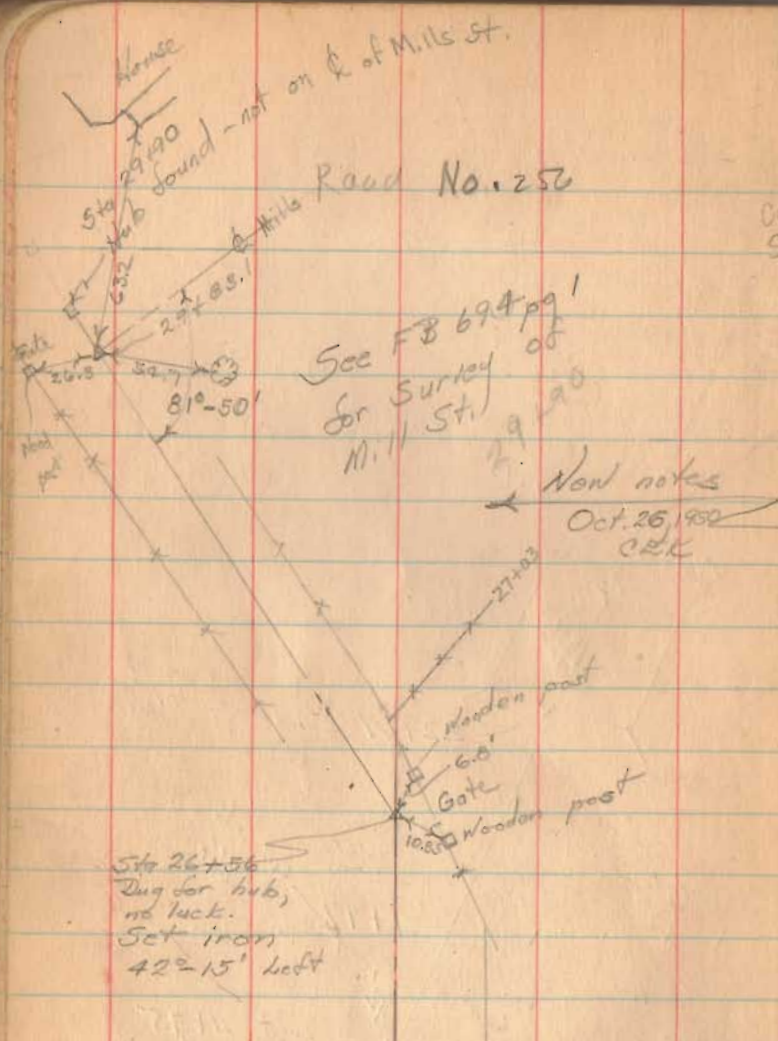 House
Sta 29+90
Hub found - not on ℄ of Mills St.
Road No. 256
℄ Mills
63.2
29+83.1
26.5
52.7
81°-50'
See FB 694 pg 1
for Survey of
Mill St.
29+90
New notes
Oct. 26, 1950
CEK
27+03
Wooden post
6.8'
Gate
Wooden post
10.85
Sta 26+56
Dug for hub,
no luck.
Set iron
42°-15' Left